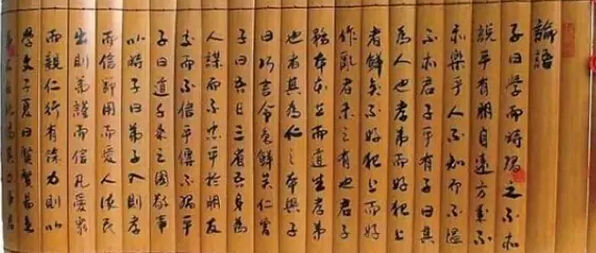 論語
子曰學而時習之不亦
說乎有朋自遠方來不
亦樂乎人不知而不慍
不亦君子乎有子曰其
為人也孝弟而好犯上
者鮮矣不好犯上而好
作亂者未之有也君子
務本本立而道生孝弟
也者其為仁之本與子
曰巧言令色鮮矣仁曾
子曰吾日三省吾身為
人謀而不忠乎於朋友
交而不信乎傳不習乎
子曰道千乘之國敬事
以時子曰弟子入則孝
而信節用而愛人使民
出則弟謹而信凡愛眾
而親仁行有餘力則以
學文子夏曰賢賢易色